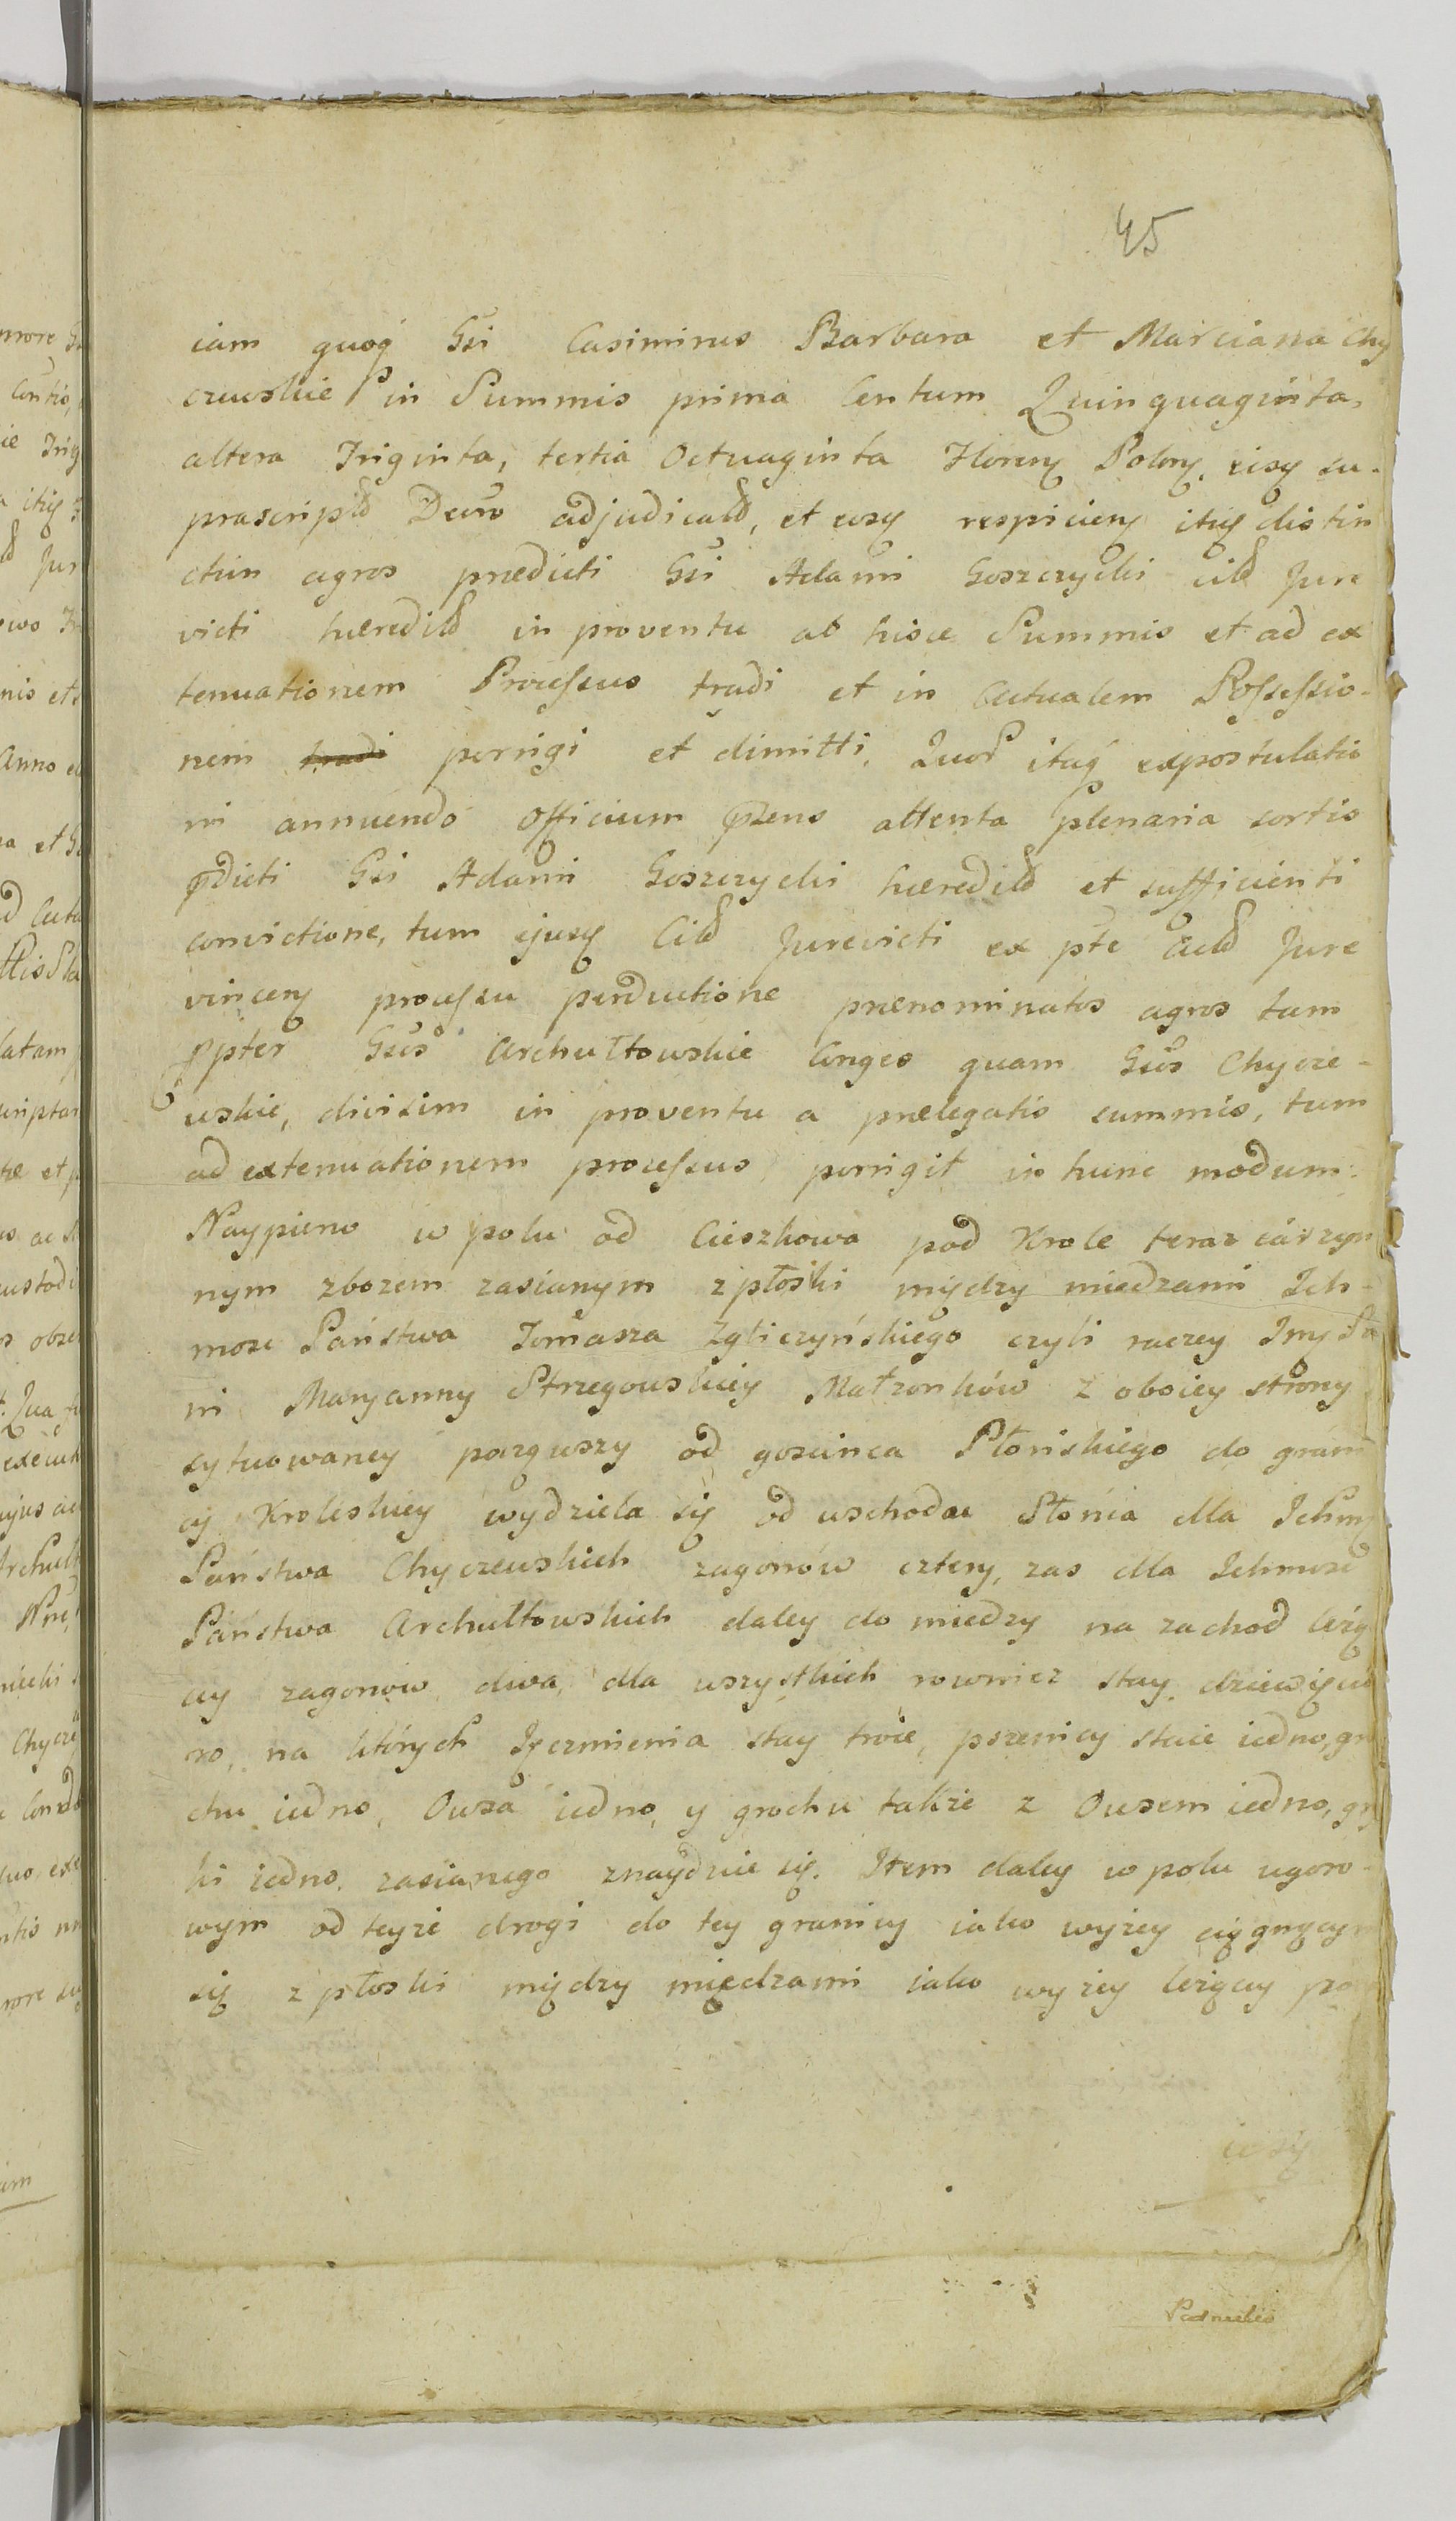 45
iam quoq Gsi Casimirus Barbara et Marciana Chy
czewskie in Summis prima Centum Quinquaginta,
altera Triginta, tertia Octuaginta Floreny Polony, eisq su-
prascriptd Decro adjudicatd, et eosq respicieny itaq distin
ctim agros prædicti Gsi Adami Goszczycki citd Jure
victi hæreditd in proventu ab hisce Summis et ad ex
tenuationem Processus tradi et in Actualem Possessio-
nem tradi porrigi et dimitti, Quor itaq expostulatio
ni annuendo Officium pŕzens attenta plenaria sortis
pdicti Gsi Adami Goszczycki hæreditd et sufficienti
convictione, tum ejusq Citd Jurevicti ex pte Actd Jure
vinceny processu perductione prænominatos agros tam
ppter Gsos Archutowskie Conges quam Gsos Chycze-
wskie, divisim in proventu a prælegatis summis, tum
ad extenuationem processus porrigit in hunc modum:
Naypierw w polu od Cieszkowa pod Krole teraz iárzyn
nym zbozem zasianym zpłoski między miedzami Ich-
mosc Państwa Tomasza Zgliczyńskiego czyli raczey Imy Pa
ni Maryanny Strzegowskiey Małzonków z oboiey strony
sytuowaney porguszy od goscinca Płońskiego do grani
cy Kroleskiey wydziela się od wschodu Słońca dla Ichmę
Państwa Chyczewskich zagonów cztery, zas dla Ichmosc
Państwa Archutowskich daley do miedzy na zachod leżą
cey zagonow dwa, dla wszystkich rowniez stay dziewięcio
ro, na których Jęczmienia stay troie, pszenicy staie iedno, gro
chu iedno, Owsa iedno, y grochu także z Owsem iedno, gry
ki iedno, zasianego znayduie się. Item daley w polu ugoro-
wym od teyże drogi do tey granicy iako wyżey ciągnącym
się zpłoski między miedzami iako wyżey leżący po